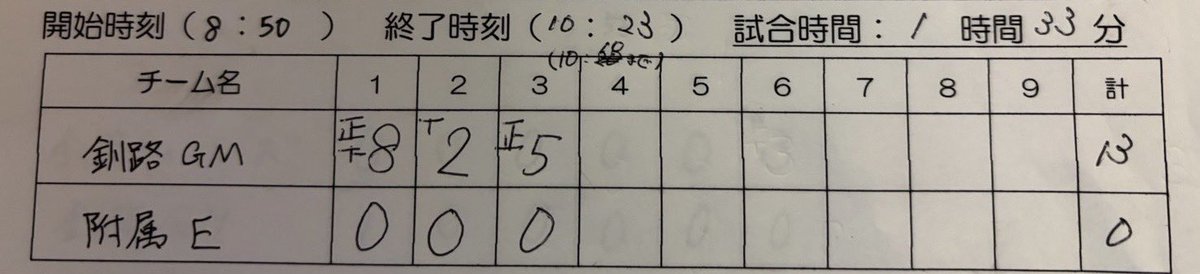 開始時刻(8:50) 終了時刻(10:23) 試合時間:1時間33分
チーム名 1 2 3 4 5 6 7 8 9 計
釧路 GM 正下8 T2 正5 13
附属 E 0 0 0 0